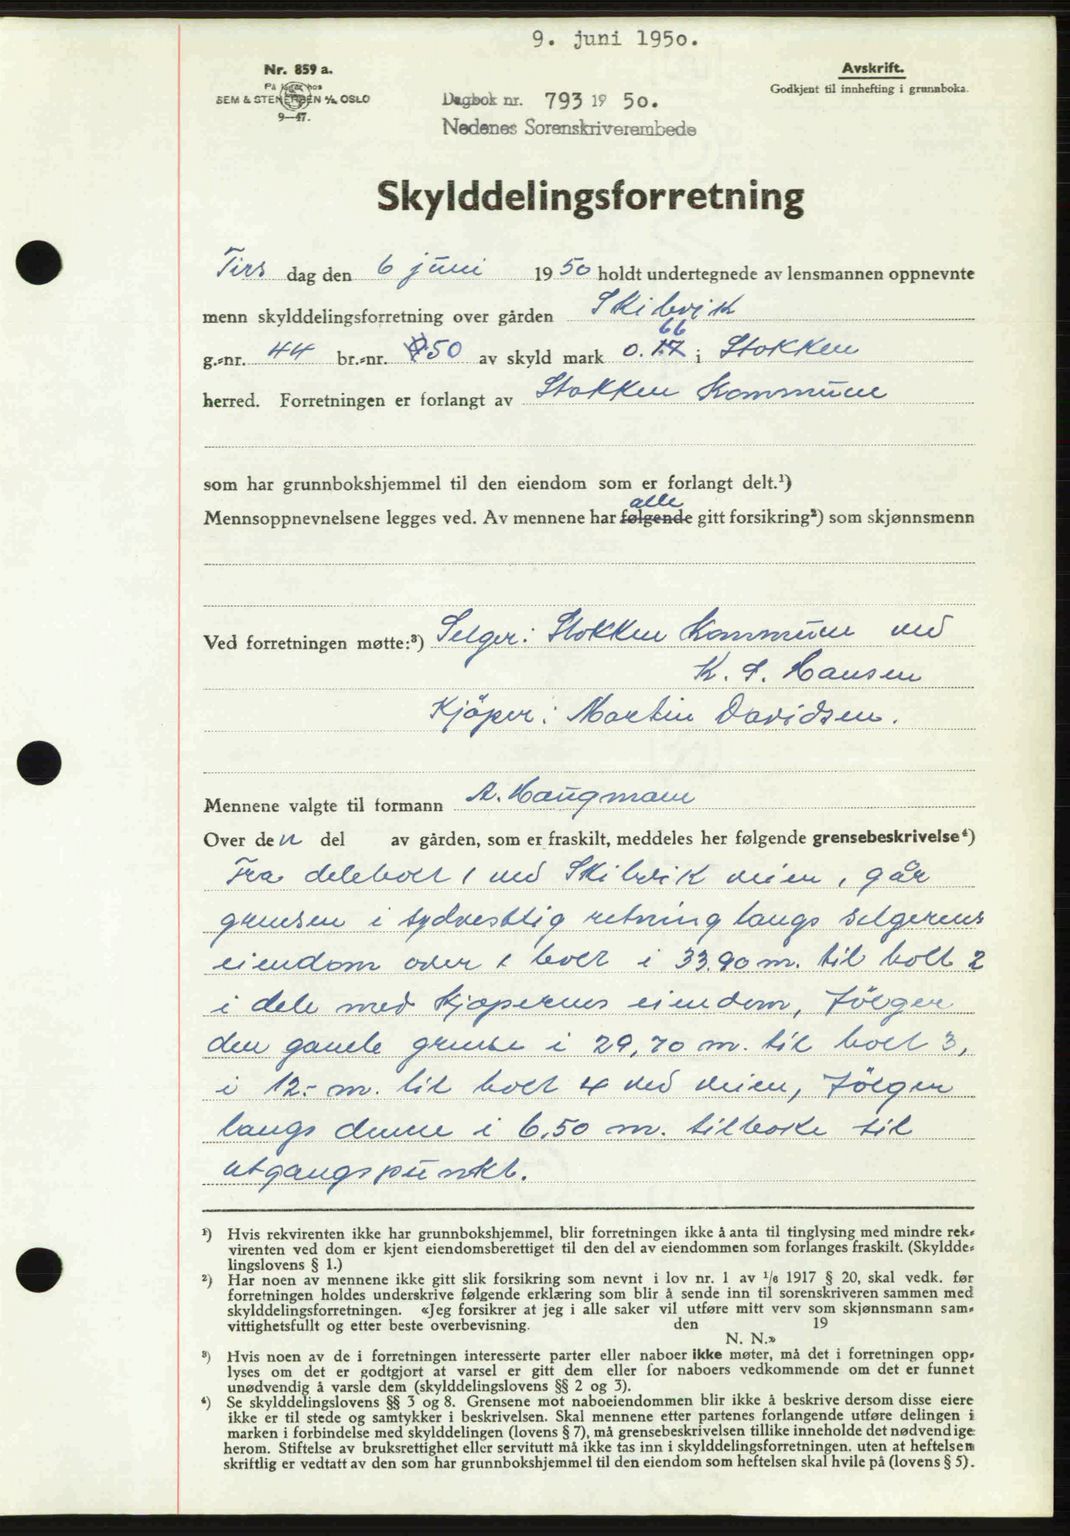 9. juni 1950.
Nr. 859 a.
På lager hos
SEM & STENERSEN A/S OSLO
9—47.
Dagbok nr. 793 19 50.
Nedenes Sorenskriverembede
Avskrift.
Godkjent til innhefting i grunnboka.
Skylddelingsforretning
Tirs dag den 6 juni 1950 holdt undertegnede av lensmannen oppnevnte
menn skylddelingsforretning over gården Skibvik
66
g.-nr. 44 br.-nr. 50 av skyld mark 0.17 i Stokken
herred. Forretningen er forlangt av Stokken Kommune
som har grunnbokshjemmel til den eiendom som er forlangt delt.¹)
alle
Mennsoppnevnelsene legges ved. Av mennene har følgende gitt forsikring²) som skjønnsmenn
Ved forretningen møtte:³) Selger: Stokken Kommune ved
K. S. Hansen
Kjöper: Martin Davidsen.
Mennene valgte til formann A. Haugmann
Over den del av gården, som er fraskilt, meddeles her følgende grensebeskrivelse⁴)
Fra delebolt 1 ved Skibvik veien, går
grensen i sydvestlig retning langs selgerens
eiendom over 1 bolt i 33.90 m. til bolt 2
i dele med kjøperens eiendom, følger
den gamle grense i 29,70 m. til bolt 3,
i 12.- m. til bolt 4 ved veien, følger
langs denne i 6,50 m. tilbake til
utgangspunkt.
¹) Hvis rekvirenten ikke har grunnbokshjemmel, blir forretningen ikke å anta til tinglysing med mindre rek-
virenten ved dom er kjent eiendomsberettiget til den del av eiendommen som forlanges fraskilt. (Skyldde-
lingslovens § 1.)
²) Har noen av mennene ikke gitt slik forsikring som nevnt i lov nr. 1 av 1/6 1917 § 20, skal vedk. før
forretningen holdes underskrive følgende erklæring som blir å sende inn til sorenskriveren sammen med
skylddelingsforretningen. «Jeg forsikrer at jeg i alle saker vil utføre mitt verv som skjønnsmann sam-
vittighetsfullt og etter beste overbevisning. den 19
N. N.»
³) Hvis noen av de i forretningen interesserte parter eller naboer ikke møter, må det i forretningen opp-
lyses om det er godtgjort at varsel er gitt dem eller for naboers vedkommende om det er funnet
unødvendig å varsle dem (skylddelingslovens §§ 2 og 3).
⁴) Se skylddelingslovens §§ 3 og 8. Grensene mot naboeiendommen blir ikke å beskrive dersom disse eiere
ikke er til stede og samtykker i beskrivelsen. Skal mennene etter partenes forlangende utføre delingen i
marken i forbindelse med skylddelingen (lovens § 7), må grensebeskrivelsen tillike inneholde det nødvendige
herom. Stiftelse av bruksrettighet eller servitutt må ikke tas inn i skylddelingsforretningen. uten at heftelsen
skriftlig er vedtatt av den som har grunnbokshjemmel til den eiendom som heftelsen skal hvile på (lovens § 5).